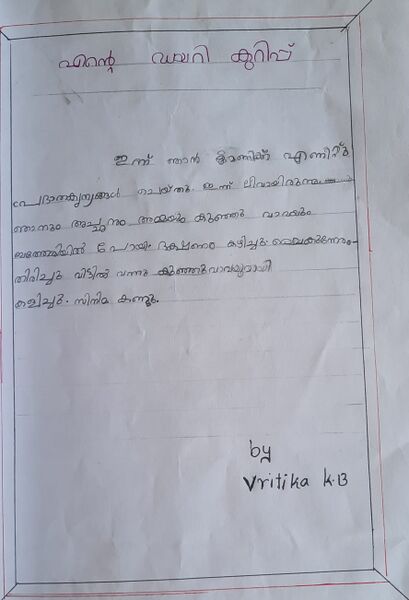 എന്റെ ഡയറി കുറിപ്പ്
ഇന്ന് ഞാൻ 8 മണിക്ക് എണീറ്റു
പ്രഭാതകൃത്യങ്ങൾ ചെയ്തു. ഇന്ന് ലീവായിരുന്നു
ഞാനും അച്ഛനും അമ്മയും കുഞ്ഞു വാവയും
പോയി. ഭക്ഷണം കഴിച്ചു. വൈകുന്നേരം
തിരിച്ചു വീട്ടിൽ വന്നു കുഞ്ഞുവാവയുമായി
കളിച്ചു. സിനിമ കണ്ടു.
by
Vritika K.B